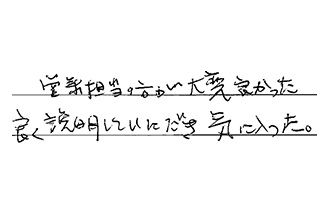 営業担当の方が大変良かった
良く説明していただき気に入った。